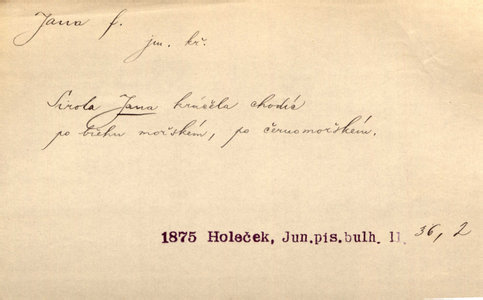 Jana f.
jm. kř.
Sirota Jana kráčela chodíc
po břehu mořském, po černomořském.
1875 Holeček, Jun.pís.bulh. II. 36, 2